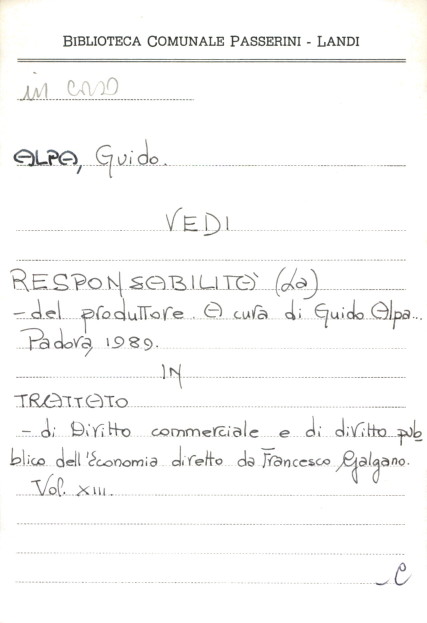 BIBLIOTECA COMUNALE PASSERINI - LANDI
in corso
ALPA, Guido.
VEDI
RESPONSABILITA' (La)
- del produttore. A cura di Guido Alpa...
Padova, 1989.
IN
TRATTATO
- di Diritto commerciale e di diritto pub
blico dell'Economia diretto da Francesco Galgano.
Vol. XIII.
C